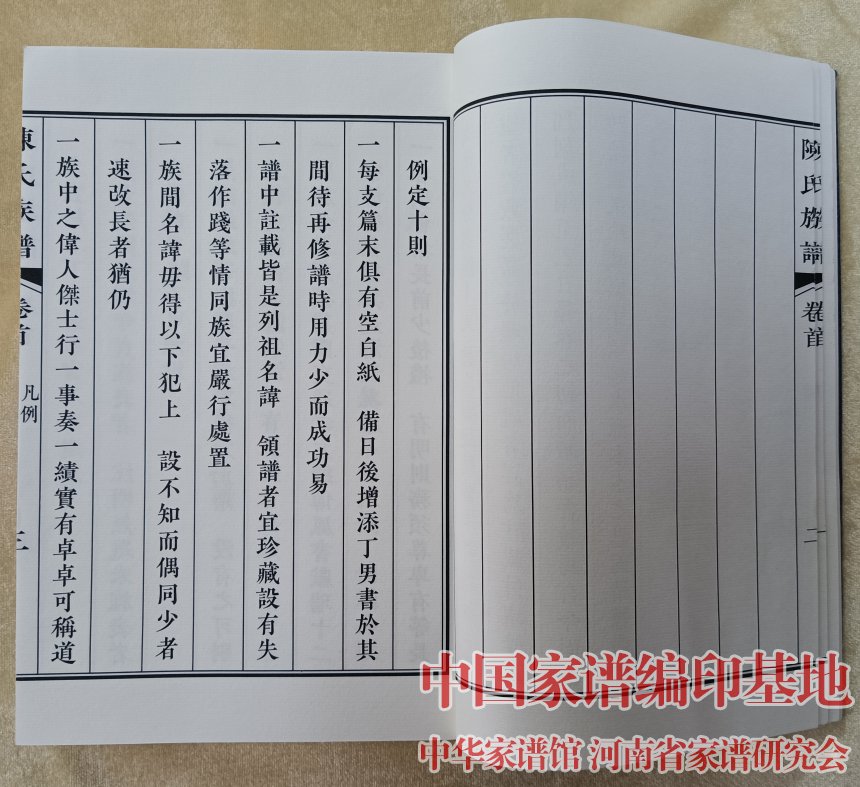 陳氏族譜
卷首
二
例定十則
一每支篇末俱有空白紙 備日後增添丁男書於其
間待再修譜時用力少而成功易
一譜中註載皆是列祖名諱 領譜者宜珍藏設有失
落作踐等情同族宜嚴行處置
一族間名諱毋得以下犯上 設不知而偶同少者
速改長者猶仍
一族中之偉人傑士行一事奏一績實有卓卓可稱道
陳氏族譜
卷首
凡例
三
中国家谱编印基地
中华家谱馆 河南省家谱研究会